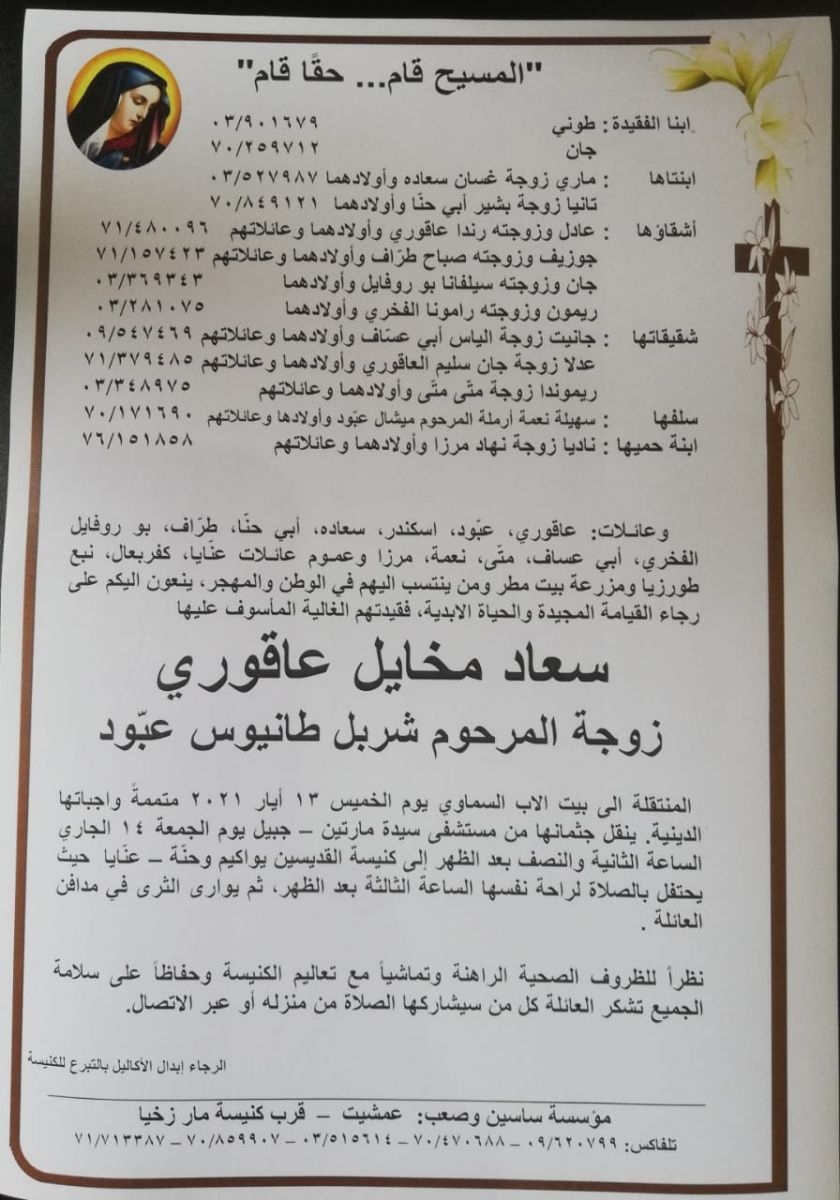 "المسيح قام... حقًا قام"
ابنا الفقيدة : طوني ٠٣/٩٠١٦٧٩
جان ٧٠/٢٥٩٧١٢
ابنتاها : ماري زوجة غسان سعاده وأولادهما ٠٣/٥٢٧٩٨٧
تانيا زوجة بشير أبي حنّا وأولادهما ٧٠/٨٤٩١٢١
أشقاؤها : عادل وزوجته رندا عاقوري وأولادهما وعائلاتهم ٧١/٤٨٠٠٩٦
جوزيف وزوجته صباح طرّاف وأولادهما وعائلاتهم ٧١/١٥٧٤٢٣
جان وزوجته سيلفانا بو روفايل وأولادهما ٠٣/٣٦٩٣٤٣
ريمون وزوجته رامونا الفخري وأولادهما ٠٣/٢٨١٠٧٥
شقيقاتها : جانيت زوجة الياس أبي عسّاف وأولادهما وعائلاتهم ٠٩/٥٤٧٤٦٩
عدلا زوجة جان سليم العاقوري وأولادهما وعائلاتهم ٧١/٣٧٩٤٨٥
ريموندا زوجة متّى متّى وأولادهما وعائلاتهم ٠٣/٣٤٨٩٧٥
سلفها : سهيلة نعمة أرملة المرحوم ميشال عبّود وأولادها وعائلاتهم ٧٠/١٧١٦٩٠
ابنة حميها : ناديا زوجة نهاد مرزا وأولادهما وعائلاتهم ٧٦/١٥١٨٥٨
وعائلات: عاقوري، عبّود، اسكندر، سعاده، أبي حنّا، طرّاف، بو روفايل
الفخري، أبي عساف، متّى، نعمة، مرزا وعموم عائلات عنّايا، كفربعال، نبع
طورزيا ومزرعة بيت مطر ومن ينتسب اليهم في الوطن والمهجر، ينعون اليكم على
رجاء القيامة المجيدة والحياة الابدية، فقيدتهم الغالية المأسوف عليها
سعاد مخايل عاقوري
زوجة المرحوم شربل طانيوس عبّود
المنتقلة الى بيت الاب السماوي يوم الخميس ١٣ أيار ٢٠٢١ متممةً واجباتها
الدينية. ينقل جثمانها من مستشفى سيدة مارتين – جبيل يوم الجمعة ١٤ الجاري
الساعة الثانية والنصف بعد الظهر إلى كنيسة القديسين يواكيم وحنّة – عنّايا حيث
يحتفل بالصلاة لراحة نفسها الساعة الثالثة بعد الظهر، ثم يوارى الثرى في مدافن
العائلة .
نظراً للظروف الصحية الراهنة وتماشياً مع تعاليم الكنيسة وحفاظاً على سلامة
الجميع تشكر العائلة كل من سيشاركها الصلاة من منزله أو عبر الاتصال.
الرجاء إبدال الأكاليل بالتبرع للكنيسة
مؤسسة ساسين وصعب: عمشيت – قرب كنيسة مار زخيا
تلفاكس: ٠٩/٦٢٠٧٩٩ – ٧٠/٤٧٠٦٨٨ – ٠٣/٥١٥٦١٤ – ٧٠/٨٥٩٩٠٧ – ٧١/٧١٣٣٨٧